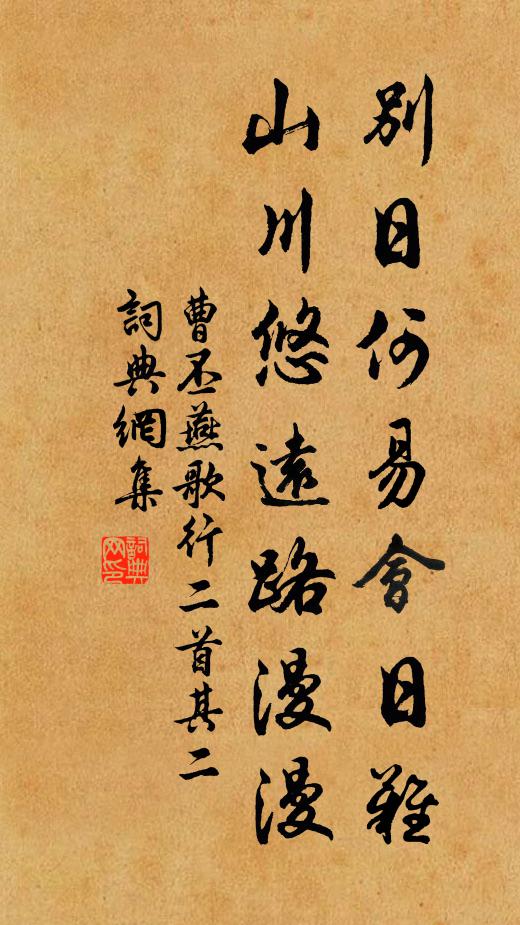 別日何易會日難
山川悠遠路漫漫
曹丕燕歌行二首其二
詞典網集
詞典网印